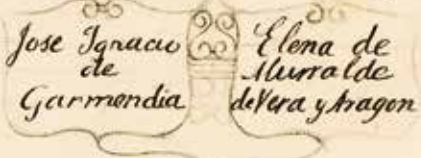 Jose Ignacio
de
Garmendia
Elena de
Iturralde
de Vera y Aragon